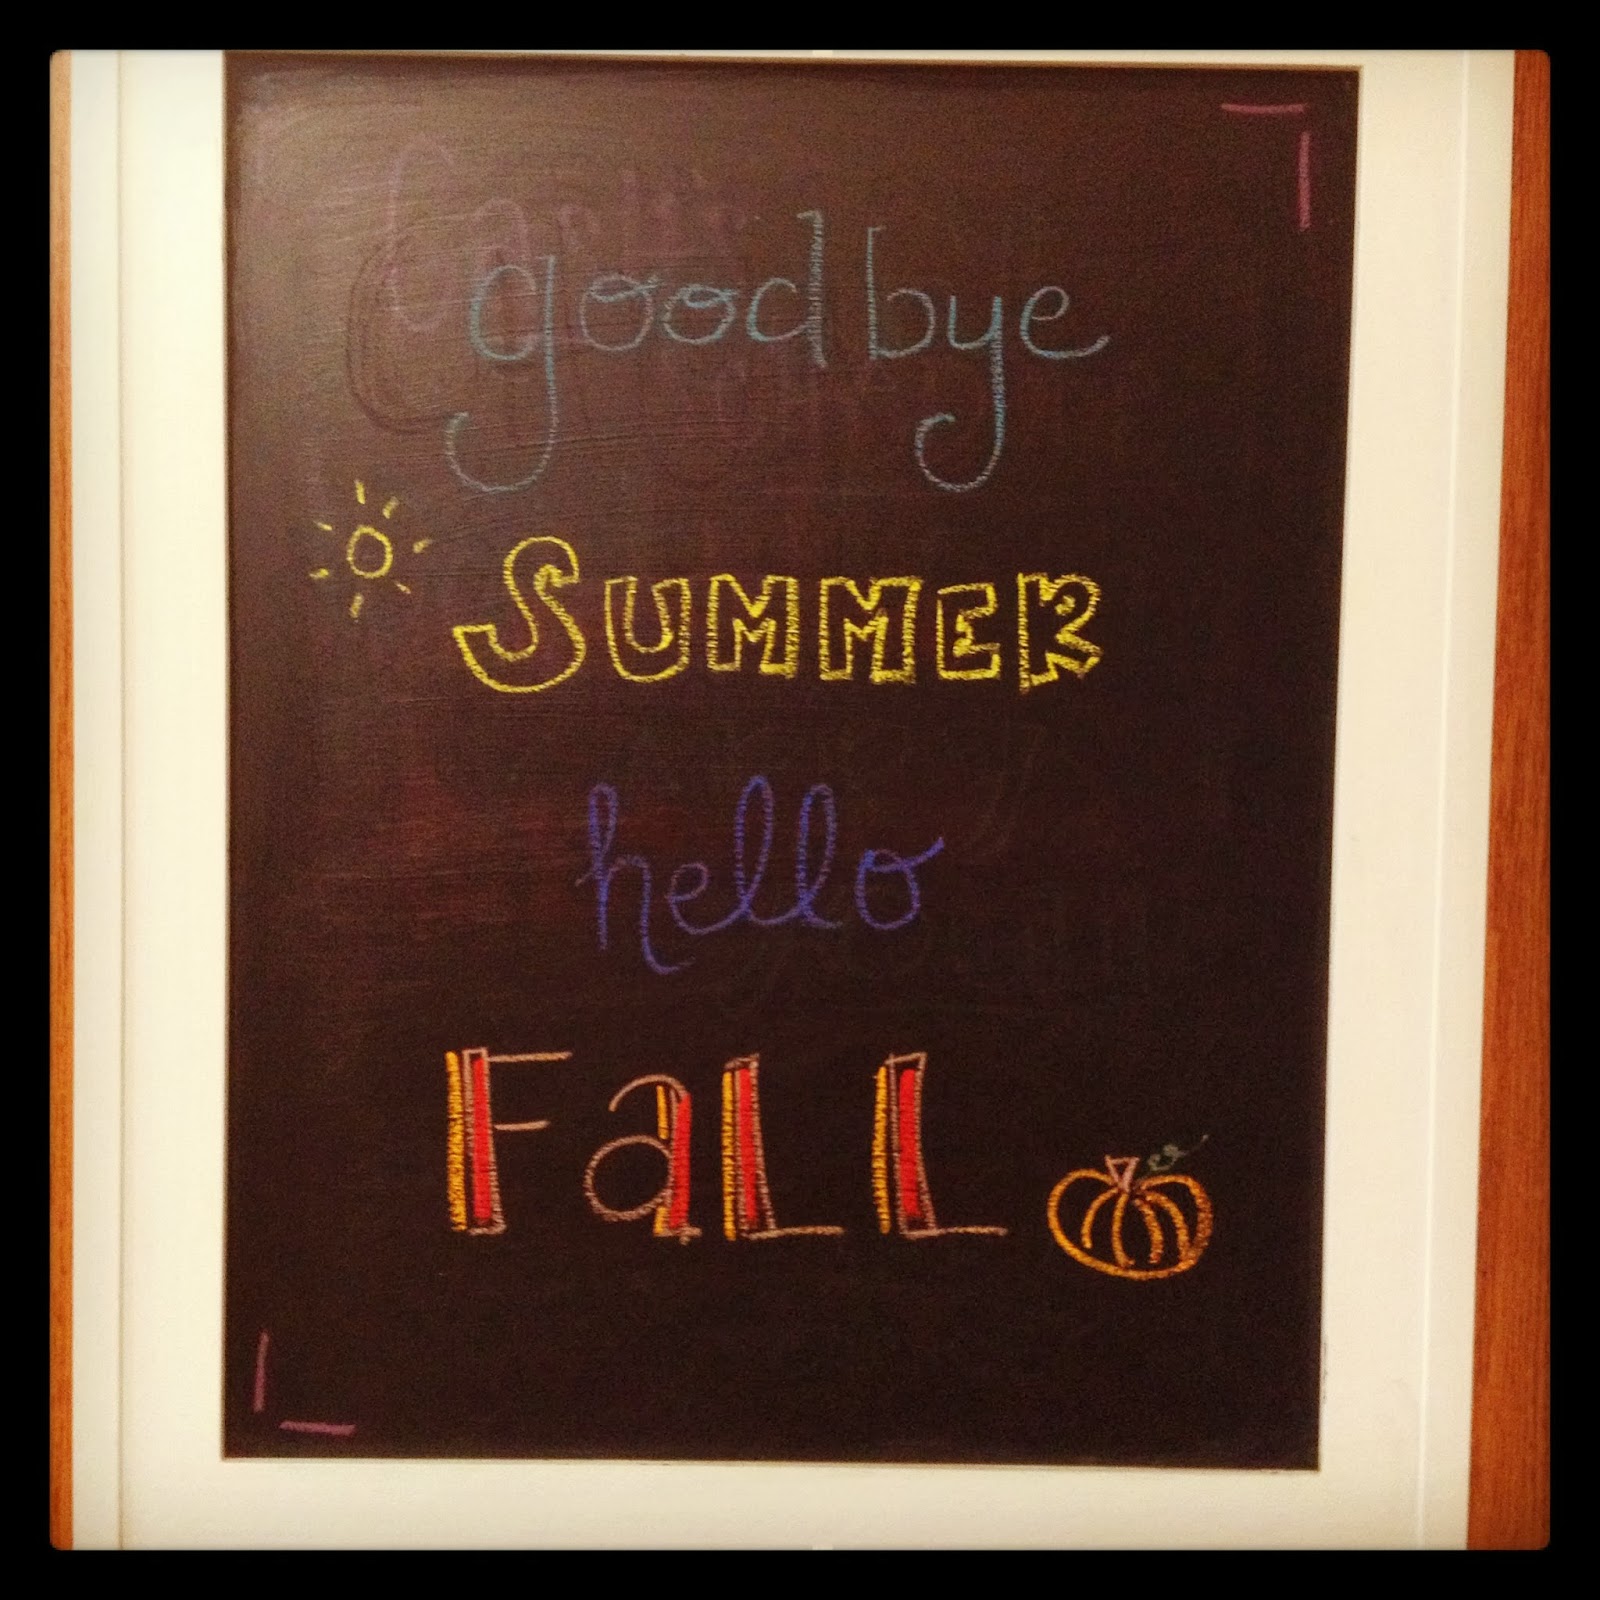 goodbye
SUMMER
hello
FaLL